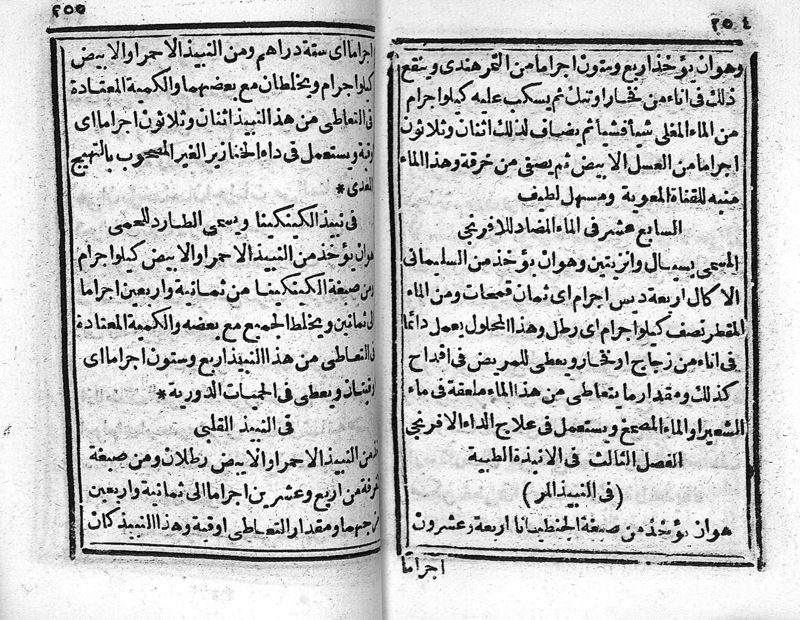 ٢٥٤
وهو ان يؤخذ اربع وستون اجراما من التمر هندى وينقع
ذلك فى اناء من فخار او تبك ثم يسكب عليه كيلو اجرام
من الماء المغلى شيأ فشيأ ثم يضاف لذلك اثنان وثلاثون
اجراما من العسل الابيض ثم يصفى من خرقة وهذا الماء
منبه للقناة المعوية ومسهل لطيف
السابع عشر فى الماء المضاد للافرنجى
المسمى بسيال وانزيتين وهو ان يؤخذ من السليمانى
الاكال اربعة ديس اجرام اى ثمان قمحات ومن الماء
المقطر نصف كيلو اجرام اى رطل وهذا المحلول يعمل دائما
فى اناء من زجاج او فخار ويعطى للمريض فى اقداح
كذلك ومقدار ما يتعاطى من هذا الماء ملعقة فى ماء
الشعير او الماء المصمغ ويستعمل فى علاج الداء الافرنجى
الفصل الثالث فى الانبذة الطبية
(فى النبيذ المر)
هو ان يؤخذ من صبغة الجنطيانا اربعة وعشرون
اجراما
٢٥٥
اجراما اى ستة دراهم ومن النبيذ الاحمر او الابيض
كيلو اجرام ويخلطان مع بعضهما والكمية المعتادة
فى التعاطى من هذا النبيذ اثنان وثلاثون اجراما اى
اوقية ويستعمل فى داء الخنازير الغير المصحوب بالتهيج
المعدى *
فى نبيذ الكينكينا ويسمى الطارد للحمى
هو ان يؤخذ من النبيذ الاحمر او الابيض كيلو اجرام
ومن صبغة الكينكينا من ثمانية واربعين اجراما
الى ثمانين ويخلط الجميع مع بعضه والكمية المعتادة
فى التعاطى من هذا النبيذ اربع وستون اجراما اى
اوقيتان ويعطى فى الحميات الدورية *
فى النبيذ القلبى
من النبيذ الاحمر او الابيض رطلان ومن صبغة
القرفة من اربع وعشرين اجراما الى ثمانية واربعين
ومقدار التعاطى اوقية وهذا النبيذ كان